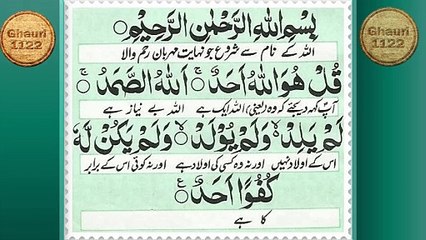 Ghauri
1122
Ghauri
1122
بِسْمِ اللهِ الرَّحْمٰنِ الرَّحِيْمِ
اللہ کے نام سے شروع جو نہایت مہربان رحم والا
قُلْ هُوَ اللهُ اَحَدٌ ۚ اَللهُ الصَّمَدُ ۚ
آپ کہہ دیجئے کہ وہ (یعنی) اللہ ایک ہے اللہ بے نیاز ہے
لَمْ يَلِدْ ۙ وَلَمْ يُوْلَدْ ۙ وَلَمْ يَكُنْ لَّهٗ
اس کے اولاد نہیں اور نہ وہ کسی کی اولاد ہے اور نہ کوئی اس کے برابر
كُفُوًا اَحَدٌ
کا ہے